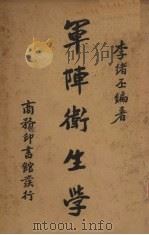 李緒編著
軍陣衛生学
商務印書館發行